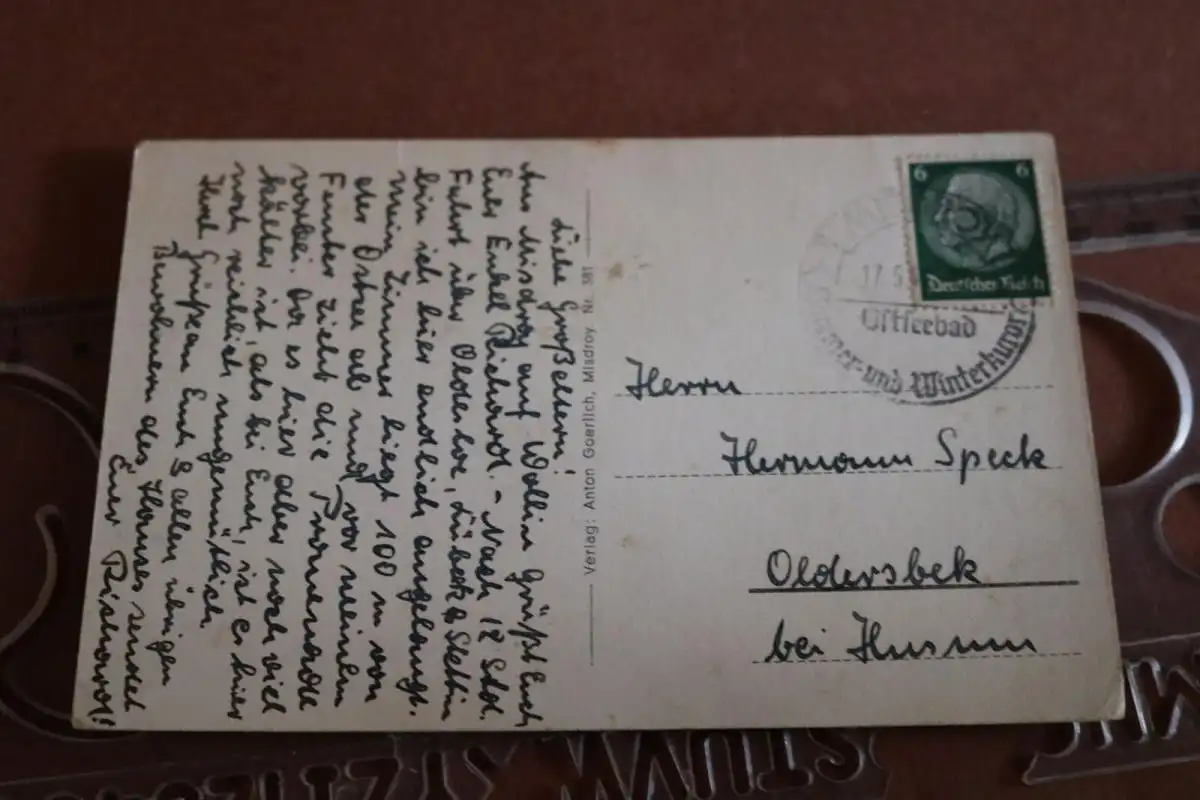 Liebe Großeltern!
Aus Misdroy auf Wollin grüßt Euch
Euer Enkel Richard. – Nach 12 Std.
Fahrt über Oldesloe, Lübeck & Stettin
bin ich hier endlich angelangt.
Mein Zimmer liegt 100 m von
der Ostsee ab und vor meinem
Fenster zieht die Promenade
vorbei. Da es hier aber noch viel
kälter ist, als bei Euch, ist es hier
noch reichlich ungemütlich.
Herzl. Grüße an Euch & allen übrigen
Bewohnern des Hauses sendet
Euer Richard!
Verlag: Anton Goerlich, Misdroy Nr. 381
6 6
Deutsches Reich
17.5
Ostseebad
Sommer- und Winterkurort
Herrn
Hermann Speck
Oldersbek
bei Husum